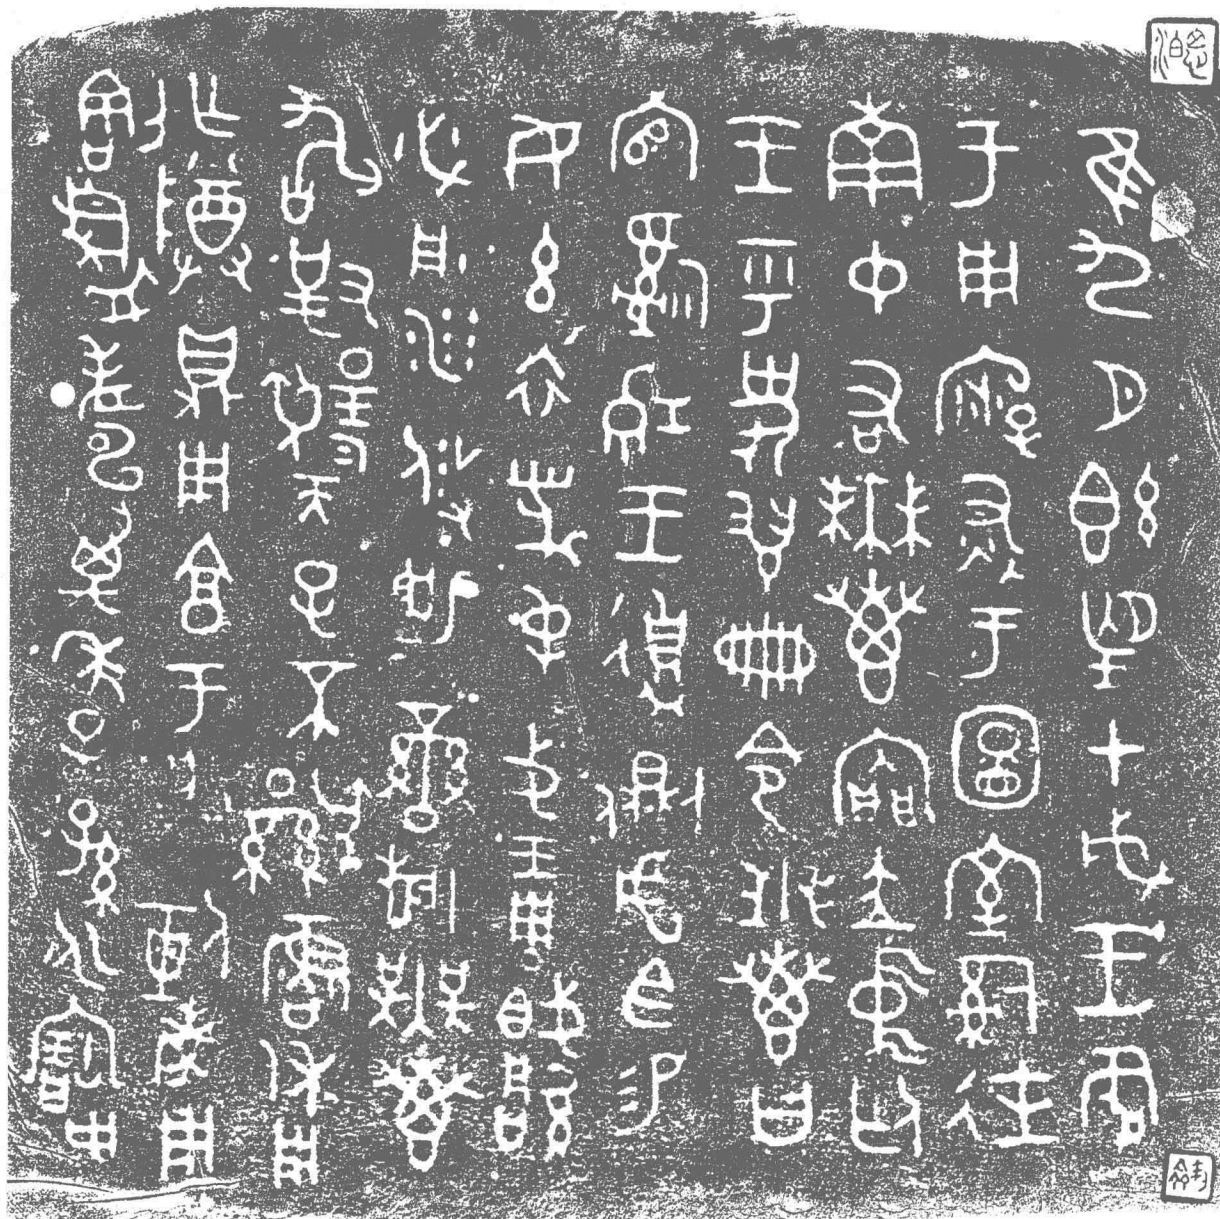 隹九月既望甲戌王各
于周廟灷于圖室司徒
南中右無叀內門立中廷
王乎史翏冊令無叀曰
官司穆王側虎臣易
女玄衣黹屯戈琱
必彤沙攸勒䜌旂無叀
敢對揚天子不顯魯休用
乍尊鼎用享于朕剌考用
割眉壽萬年子孫永寶用